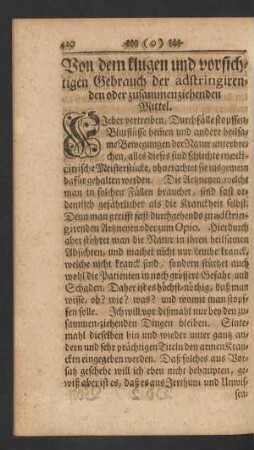 420 (0)
Von dem klugen und vorsich-
tigen Gebrauch der adstringiren-
den oder zusammenziehenden
Mittel.
Fieber vertreiben, Durchfälle stopffen,
Blutflüsse hemen und andere heilsa-
me Bewegungen der Natur unterbre-
chen, alles dieses sind schlechte medi-
cinische Meisterstücke, ohnerachtet sie insgemein
dafür gehalten werden. Die Arzneyen, welche
man in solchen Fällen brauchet, sind fast or-
dentlich gefährlicher als die Kranckheit selbst:
Denn man greifft fast durchgehends zu adstrin-
girenden Arzneyen oder zum Opio. Hierdurch
aber stöhret man die Natur in ihren heilsamen
Absichten, und machet nicht nur leuthe kranck,
welche nicht kranck sind, sondern stürtzt auch
wohl die Patienten in noch grössere Gefahr und
Schaden. Daher ist es höchst-nöthig, daß man
wisse, ob? wie? was? und womit man stopf-
fen solle. Ich will vor dißmahl nur bey den zu-
sammen-ziehenden Dingen bleiben. Sinte-
mahl dieselben hin und wieder unter gantz an-
dern und sehr prächtigen Tituln den armen Kran-
cken eingegeben werden. Daß solches aus Vor-
satz geschehe will ich eben nicht behaupten, ge-
wiß aber ist es, daß es aus Irrthum und Unwis-
sen-